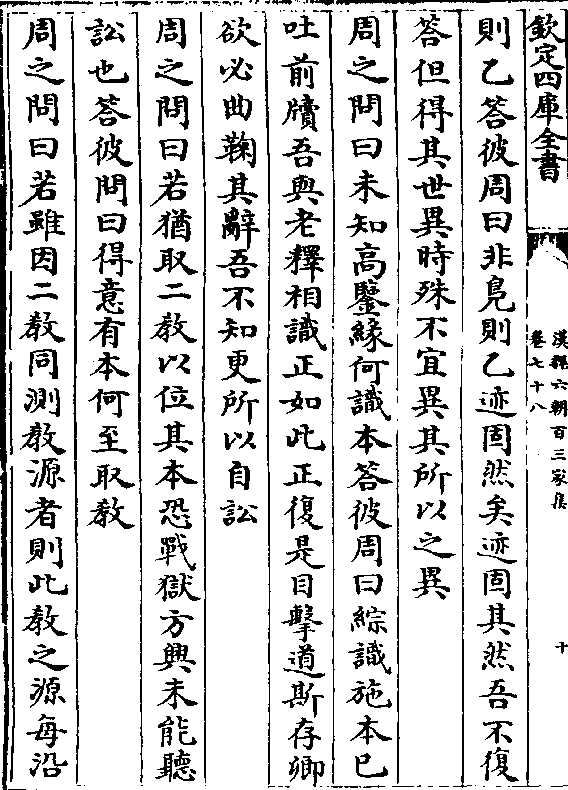 欽定四庫全書
漢魏六朝百三家集
卷七十八
十
則乙答彼周曰非鳧則乙迹固然矣迹固其然吾不復
答但得其世異時殊不宜異其所以之異
周之問曰未知高鑒緣何識本答彼周曰綜識施本已
吐前牘吾與老釋相識正如此正復是目擊道斯存卿
欲必曲鞠其辭吾不知更所以自訟
周之問曰若猶取二教以位其本恐戰獄方興未能聽
訟也答彼問曰得意有本何至取教
周之問曰若雖因二教同測教源者則此教之源每沿